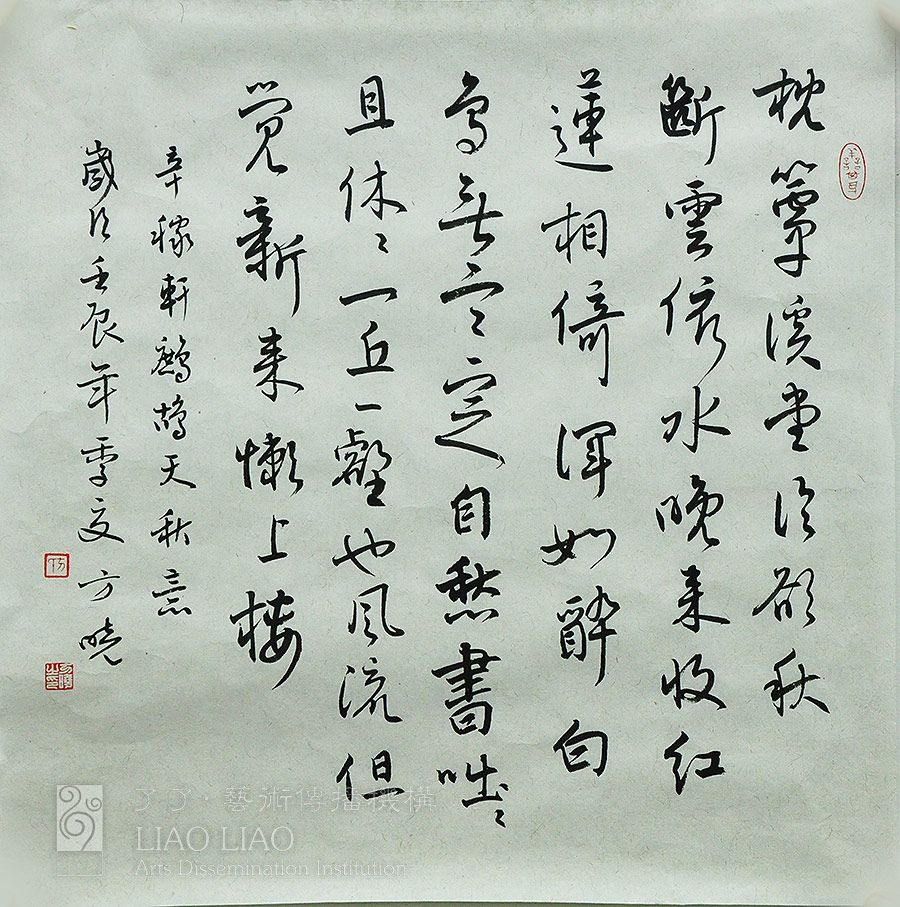 枕簟溪堂冷欲秋
斷雲依水晚来收红
蓮相倚渾如醉白
鳥無言定自愁書咄々
且休々一丘一壑也風流但
觉新来懒上楼
辛稼軒鷓鴣天秋意
歲次壬辰年季夏方曉
了了·藝術傳播機構
LIAO LIAO
Arts Dissemination Institution